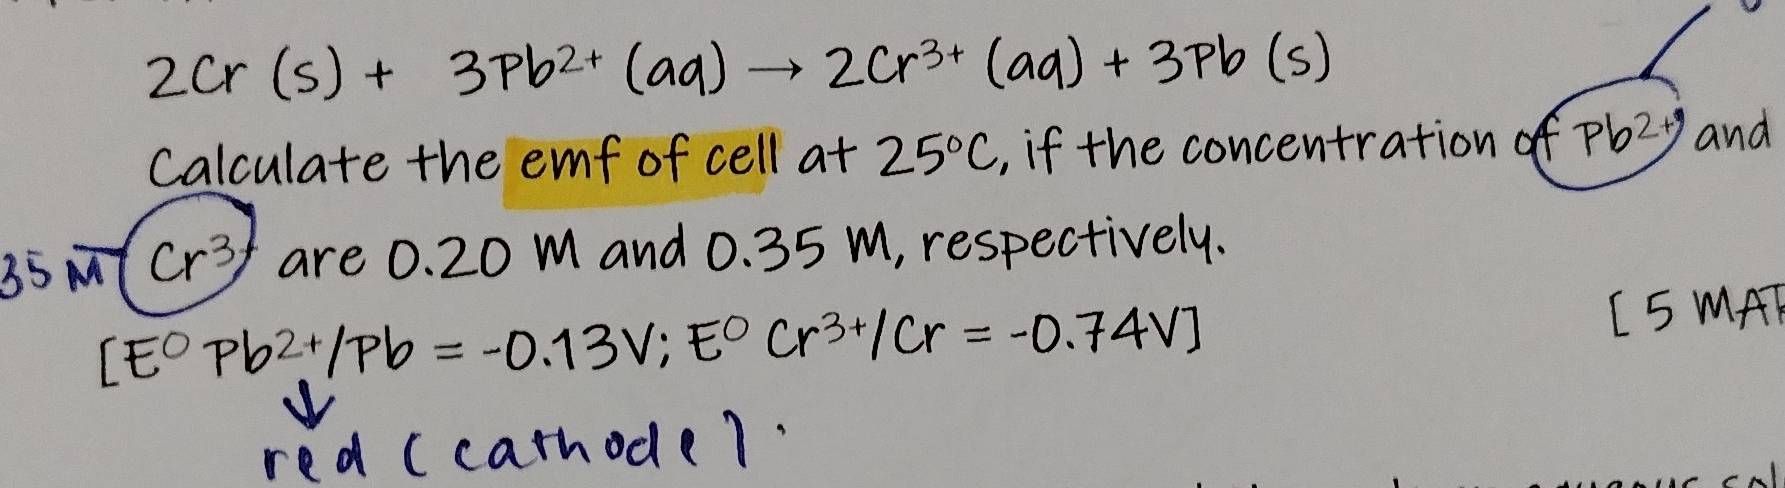 2Cr (s) + 3Pb2+ (aq) → 2Cr3+ (aq) + 3Pb (s)
Calculate the emf of cell at 25°C, if the concentration of Pb2+ and
35 M Cr3+ are 0.20 M and 0.35 M, respectively.
[5
[E° Pb2+/Pb = -0.13V; E° Cr3+/Cr = -0.74V]
↓
red (cathode).